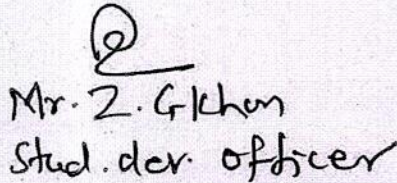 Mr. Z. G Khan
Stud. dev. officer